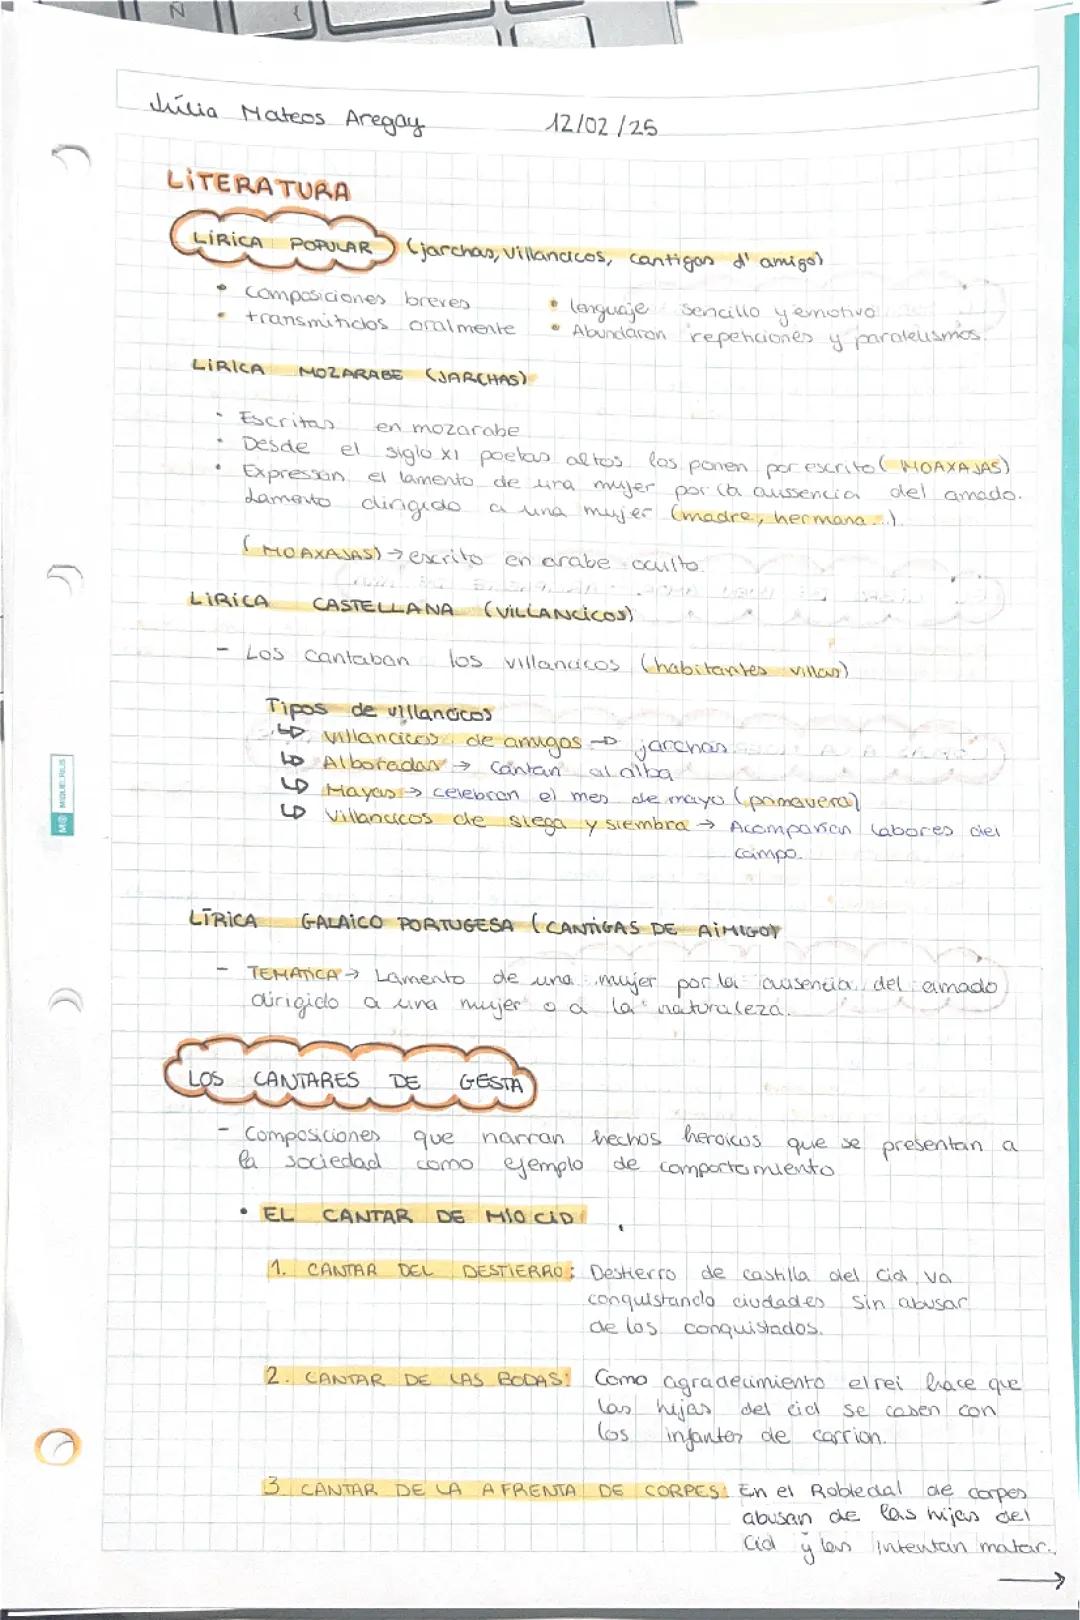 N
{
Júlia Mateos Aregay 12/02/25
LITERATURA
LÍRICA POPULAR (jarchas, villancicos, cantigas d' amigo)
• Composiciones breves • lenguaje sencillo y emotivo
• transmitidos oralmente • Abundaran repeticiones y paralelismos.
LIRICA MOZARABE (JARCHAS)
• Escritas en mozarabe
• Desde el siglo XI poetas altos las ponen por escrito (MOAXAJAS)
• Expressan el lamento de una mujer por la aussencia del amado.
Lamento dirigido a una mujer (madre, hermana...)
(MOAXAJAS) → escrito en arabe oculto.
LIRICA CASTELLANA (VILLANCICOS)
- Los cantaban los villancicos (habitantes villas)
Tipos de villancicos
↳ villancicos de amigos → jarchas
↳ Alboradas → Cantan al alba
↳ Mayas → celebran el mes de mayo (primavera)
↳ Villancicos de siega y siembra → Acompañan labores del
campo.
LÍRICA GALAICO PORTUGESA (CANTIGAS DE AIMIGO)
- TEMATICA → Lamento de una mujer por la ausencia del amado
dirigido a una mujer o a la naturaleza.
LOS CANTARES DE GESTA
- Composiciones que narran hechos heroicos que se presentan a
la sociedad como ejemplo de comportamiento
• EL CANTAR DE MIO CID
1. CANTAR DEL DESTIERRO: Destierro de castilla del Cid, va
conquistando ciudades sin abusar
de los conquistados.
2. CANTAR DE LAS BODAS: Como agradecimiento el rei hace que
las hijas del cid se casen con
los infantes de carrion.
3. CANTAR DE LA AFRENTA DE CORPES: En el Robledal de corpes
abusan de las hijas del
Cid y las intentan matar.
→
MIQUELRIUS